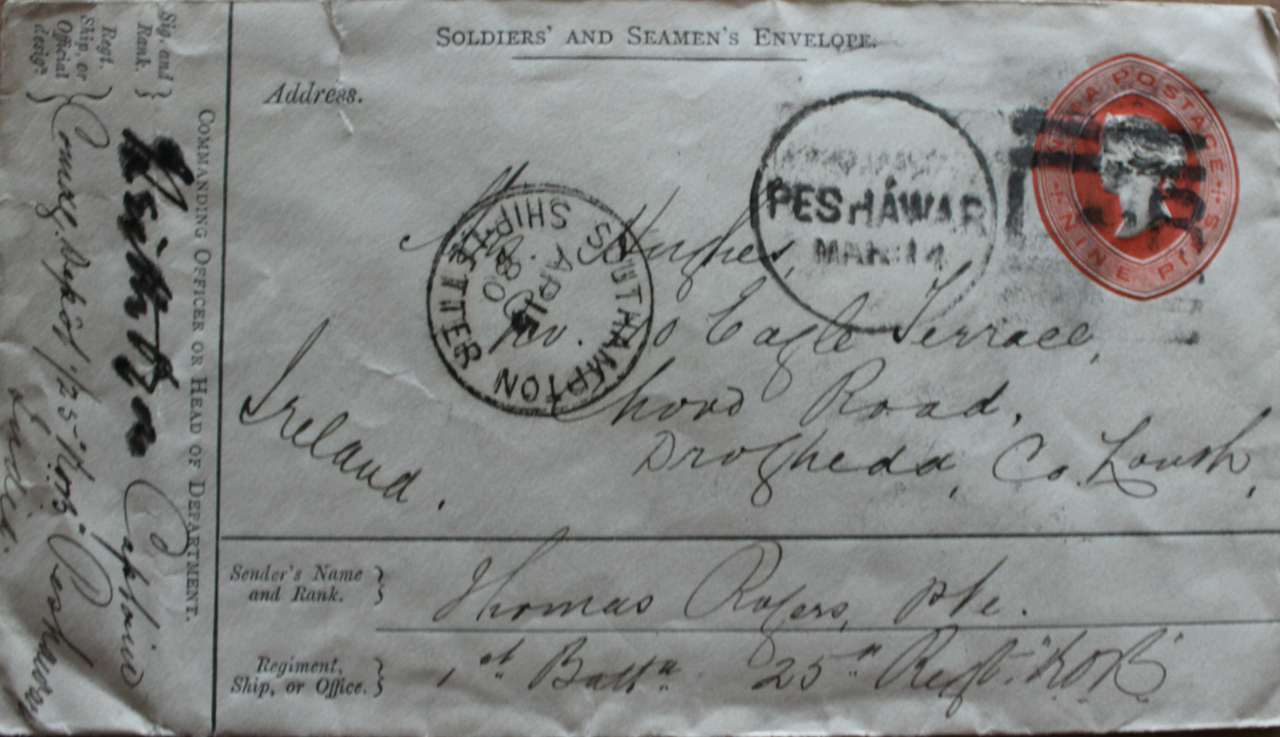 SOLDIERS' AND SEAMEN'S ENVELOPE.
Address.
INDIA POSTAGE
NINE PIES
PESHÁWAR
MAR:14
SOUTHAMPTON
SHIP LETTER
AP 15
80
Hughes,
No. Eagle Terrace,
Chord Road,
Drogheda, Co. Louth,
Ireland.
Sender's Name
and Rank.
Thomas Rogers, Pte.
Regiment,
Ship, or Office.
1st Battn 25th Regt. "KOB"
COMMANDING OFFICER OR HEAD OF DEPARTMENT.
Sig. and
Rank.
Captain
Regt.
Ship, or
Official
design.
Comdg. Depôt 1/25th "KOB" Peshawar,
India.